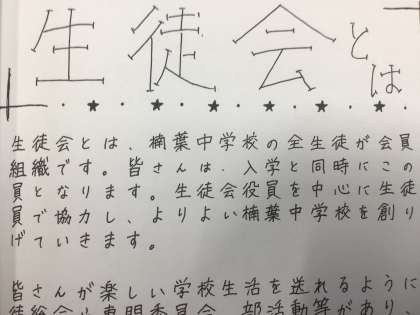 生徒会とは
生徒会とは、楠葉中学校の全生徒が会員
組織です。皆さんは、入学と同時にこの
員となります。生徒会役員を中心に生徒
員で協力し、よりよい楠葉中学校を創り
げていきます。
皆さんが楽しい学校生活を送れるように
徒総会や専門委員会、部活動等があり、